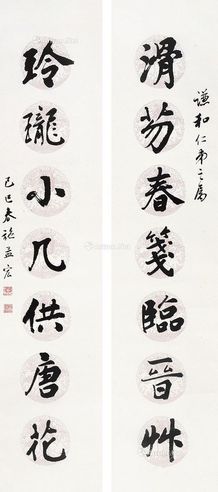 謙和仁弟之屬
滑笏春箋臨晉艸
玲瓏小几供唐花
己巳春益宏